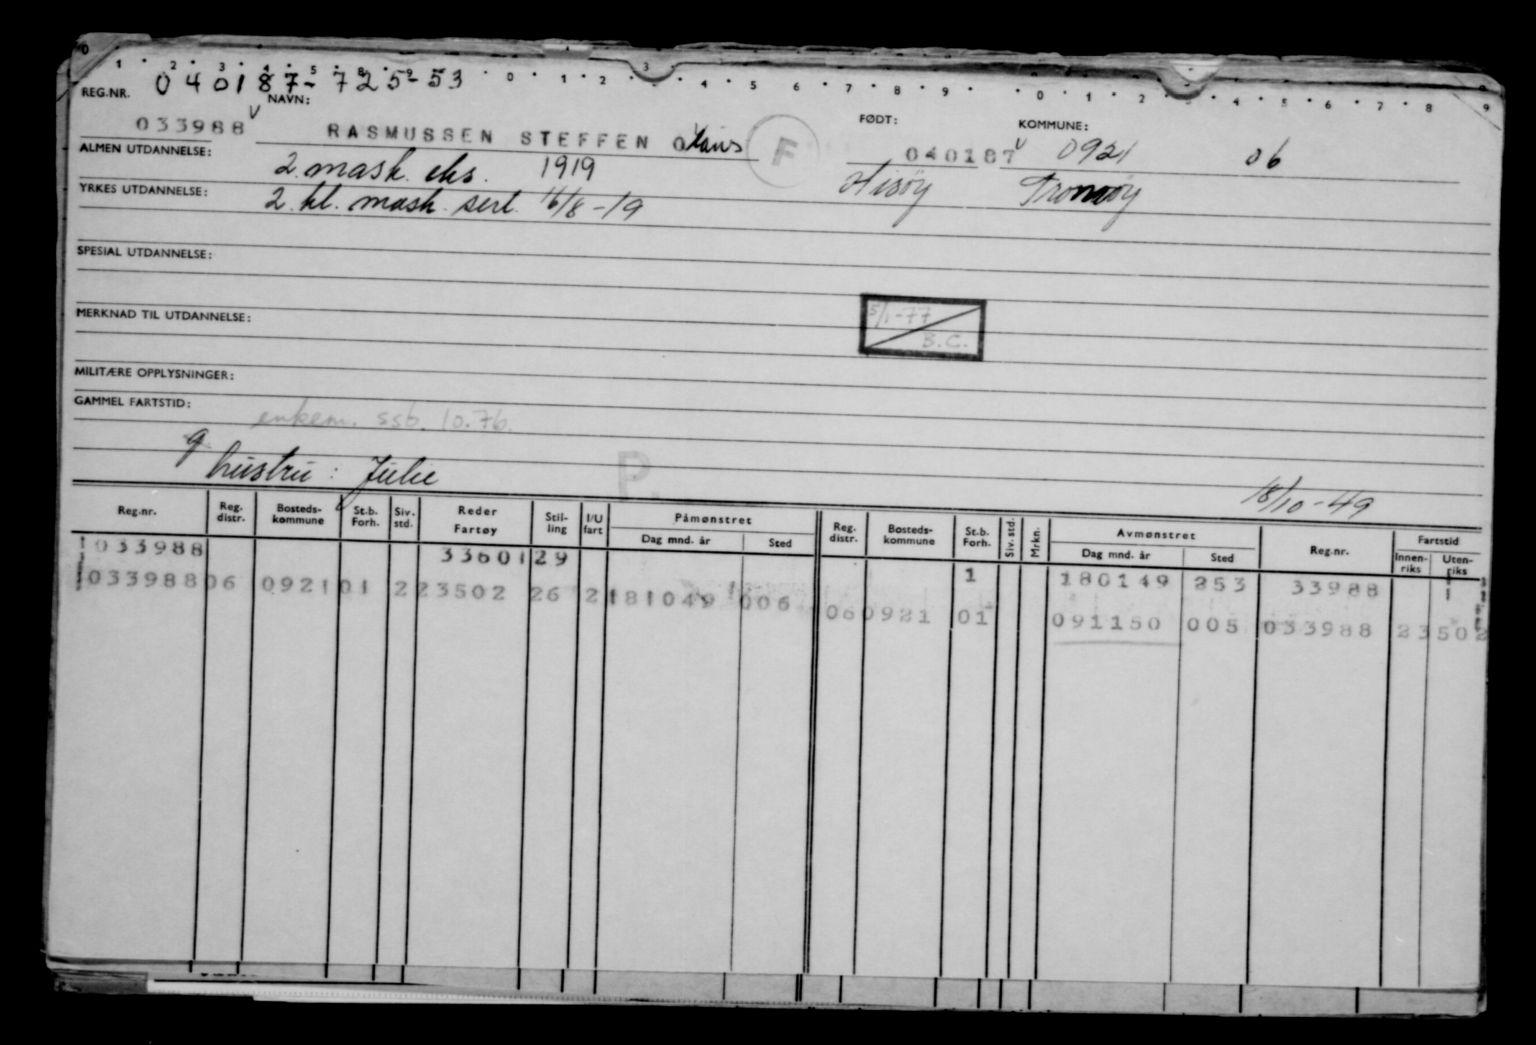 0 1 2 3 4 5 8 9 0 1 2 3 4 5 6 7 8 9 0 1 2 3 4 5 6 7 8 9
040187-72553
REG.NR. NAVN: FØDT: KOMMUNE:
033988 RASMUSSEN STEFFEN F 040187 0921 06
ALMEN UTDANNELSE: 2. mask. eks. 1919 Hisøy Tromøy
YRKES UTDANNELSE: 2. kl. mask. sert. 16/8-19
SPESIAL UTDANNELSE:
MERKNAD TIL UTDANNELSE: 5/1-77
B.C.
MILITÆRE OPPLYSNINGER:
GAMMEL FARTSTID:
enkem. ssb. 10.76.
g hustru: Julie P. 18/10-49
Reg.nr. Reg. distr. Bosteds-kommune St.b. Forh. Siv. std. Reder Fartøy Stil-ling I/U fart Påmønstret Dag mnd. år Sted Reg. distr. Bosteds-kommune St.b. Forh. Siv. std. Mrkn. Avmønstret Dag mnd. år Sted Reg.nr. Fartstid Innen-riks Uten-riks
033988 3360129 1 180149 253 33988
033988 06 0921 01 2 23502 26 2 181049 006 06 0921 01 091150 005 033988 23502